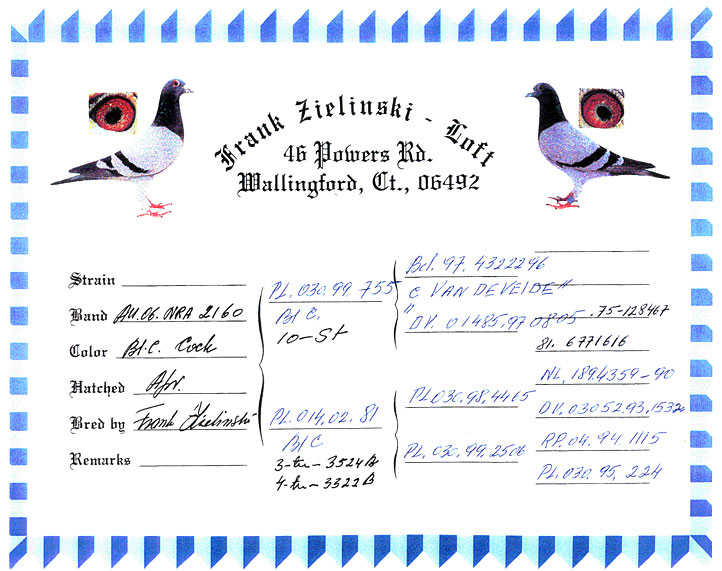 Frank Zielinski - Loft
46 Powers Rd.
Wallingford, Ct., 06492
Strain
Band AU.06.NRA 2160
Color B/C. Cock
Hatched Apr.
Bred by Frank Zielinski
Remarks
PL.030.99.755
B/C.
10-St
PL.014.02.81
B/C
3-tu-3524B
4-tu-3322B
Bel. 97. 4322296
C VAN DEVELDE "
"
DV. 01485.97 0805
PL030.98.4465
PL.030.99.2506
.75-128467
81. 6771616
NL. 189.4359-90
DV.03052.93.15320
RP.04.94.1115
PL.030.95.224